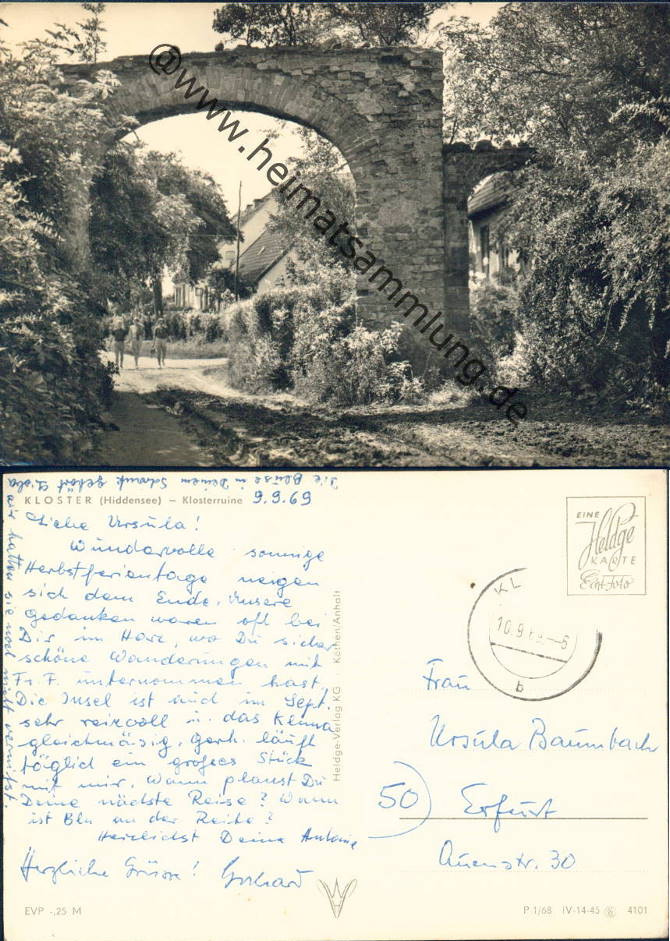 @www.heimatsammlung.de
Die Bluse in Deinem Schrank gehört
KLOSTER (Hiddensee) – Klosterruine 9.9.69
Liebe Ursula!
Wundervolle sonnige
Herbstferientage neigen
sich dem Ende. Unsere
Gedanken waren oft bei
Dir im Harz, wo Du sicher
schöne Wanderungen mit
Fr. F. unternommen hast.
Die Insel ist auch im Sept.
sehr reizvoll u. das Klima
gleichmäßig. Gerh. läuft
täglich ein großes Stück
mit mir. Wann planst Du
Deine nächste Reise? Wann
ist Bln an der Reihe?
Herzlichst Deine
Herzliche Grüsse! Gerhard
wir hatten sie noch nicht vermisst.
EVP -,25 M
Heldge-Verlag KG · Köthen/Anhalt
EINE
Heldge
KARTE
Echt Foto
KL
10.9.69-6
b
Frau
Ursula Baumbach
50) Erfurt
Auenstr. 30
P 1/68 IV-14-45 6 4101